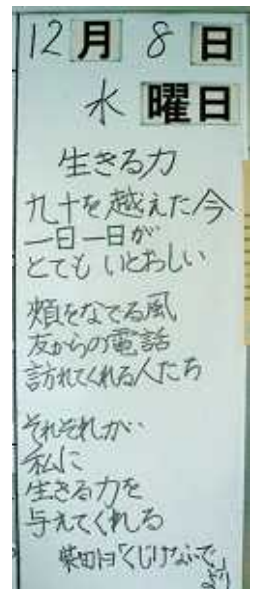 12月8日
水曜日
生きる力
九十を越えた今
一日一日が
とても いとおしい
頬をなでる風
友からの電話
訪れてくれる人たち
それぞれが
私に
生きる力を
与えてくれる
柴田トヨ「くじけないで」
より